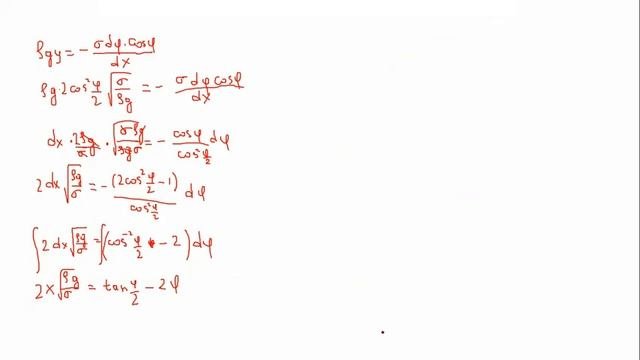 ρgy = - σdφ·cosφ/dx
ρg·2cos²φ/2 √(σ/ρg) = - σdφcosφ/dx
dx · 2ρg/σ · √(σρg/ρgσ) = - cosφ/cos²φ/2 dφ
2dx√(ρg/σ) = - (2cos²φ/2 - 1)/cos²φ/2 dφ
∫2dx√(ρg/σ) = ∫(cos⁻²φ/2 - 2)dφ
2x√(ρg/σ) = tanφ/2 - 2φ